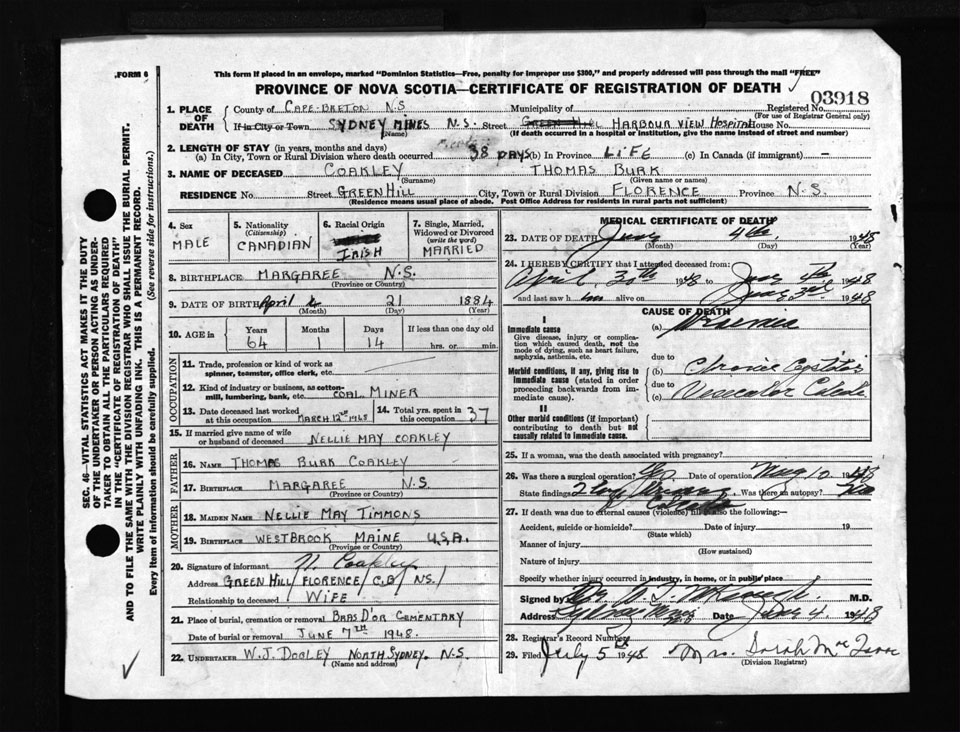 FORM 6
This form if placed in an envelope, marked "Dominion Statistics—Free, penalty for improper use $300," and properly addressed will pass through the mail "FREE"
PROVINCE OF NOVA SCOTIA—CERTIFICATE OF REGISTRATION OF DEATH
03918
1. PLACE OF DEATH
County of CAPE-BRETON N.S Municipality of Registered No.
(For use of Registrar General only)
If in City or Town SYDNEY MINES N.S. Street GREEN HILL HARBOUR VIEW HOSPITAL House No.
(Name) (If death occurred in a hospital or institution, give the name instead of street and number)
2. LENGTH OF STAY (in years, months and days)
(a) In City, Town or Rural Division where death occurred 38 DAYS (b) In Province LIFE (c) In Canada (if immigrant) —
3. NAME OF DECEASED COAKLEY THOMAS BURK
(Surname) (Given name or names)
RESIDENCE No. Street GREEN HILL City, Town or Rural Division FLORENCE Province N.S.
(Residence means usual place of abode. Post Office Address for residents in rural parts not sufficient)
SEC. 46—VITAL STATISTICS ACT MAKES IT THE DUTY
OF THE UNDERTAKER OR PERSON ACTING AS UNDER-
TAKER TO OBTAIN ALL THE PARTICULARS REQUIRED
IN THE "CERTIFICATE OF REGISTRATION OF DEATH"
AND TO FILE THE SAME WITH THE DIVISION REGISTRAR WHO SHALL ISSUE THE BURIAL PERMIT.
WRITE PLAINLY WITH UNFADING INK. THIS IS A PERMANENT RECORD.
Every item of information should be carefully supplied. (See reverse side for instructions.)
4. Sex
MALE
5. Nationality
(Citizenship)
CANADIAN
6. Racial Origin
IRISH
7. Single, Married,
Widowed or Divorced
(write the word)
MARRIED
8. BIRTHPLACE MARGAREE N.S.
(Province or Country)
9. DATE OF BIRTH April 21 1884
(Month) (Day) (Year)
10. AGE in Years Months Days If less than one day old
64 1 14 hrs. or min.
OCCUPATION
11. Trade, profession or kind of work as
spinner, teamster, office clerk, etc.
12. Kind of industry or business, as cotton-
mill, lumbering, bank, etc. COAL MINER
13. Date deceased last worked
at this occupation MARCH 12TH 1948
14. Total yrs. spent in
this occupation 37
15. If married give name of wife
or husband of deceased NELLIE MAY COAKLEY
FATHER
16. NAME THOMAS BURK COAKLEY
17. BIRTHPLACE MARGAREE N.S.
(Province or Country)
MOTHER
18. MAIDEN NAME NELLIE MAY TIMMONS
19. BIRTHPLACE WESTBROOK MAINE U.S.A.
(Province or Country)
20. Signature of informant N. Coakley
Address GREEN HILL FLORENCE C.B N.S.
Relationship to deceased WIFE
21. Place of burial, cremation or removal BRAS D'OR CEMENTARY
Date of burial or removal JUNE 7TH 1948.
22. UNDERTAKER W.J. DOOLEY NORTH SYDNEY. N.S.
(Name and address)
MEDICAL CERTIFICATE OF DEATH
23. DATE OF DEATH June 4th 1948
(Month) (Day) (Year)
24. I HEREBY CERTIFY that I attended deceased from:
April 30th 1948 to June 4th 1948
and last saw him alive on June 3rd 1948
CAUSE OF DEATH
I
Immediate cause
Give disease, injury or complica-
tion which caused death, not the
mode of dying, such as heart failure,
asphyxia, asthenia, etc.
(a) Uraemia
due to
Morbid conditions, if any, giving rise to
immediate cause (stated in order
proceeding backwards from im-
mediate cause).
(b) Chronic Cystitis
due to
(c) Vesicular Calculi
II
Other morbid conditions (if important)
contributing to death but not
causally related to immediate cause.
25. If a woman, was the death associated with pregnancy?
26. Was there a surgical operation? Yes Date of operation May 10 1948
State findings 2 Large Was there an autopsy? No
27. If death was due to external causes (violence) fill in also the following:—
Accident, suicide or homicide? Date of injury 19
(State which)
Manner of injury
(How sustained)
Nature of injury
Specify whether injury occurred in industry, in home, or in public place
Signed by Dr. M.D.
Address Sydney Mines N.S. Date June 4 1948
28. Registrar's Record Number
29. Filed July 5th 1948 Mrs. Sarah
(Division Registrar)